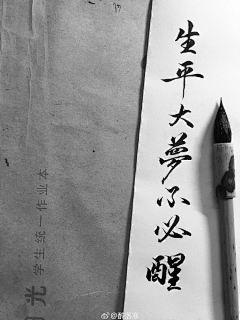 生平大夢不必醒
光
学生统一作业本